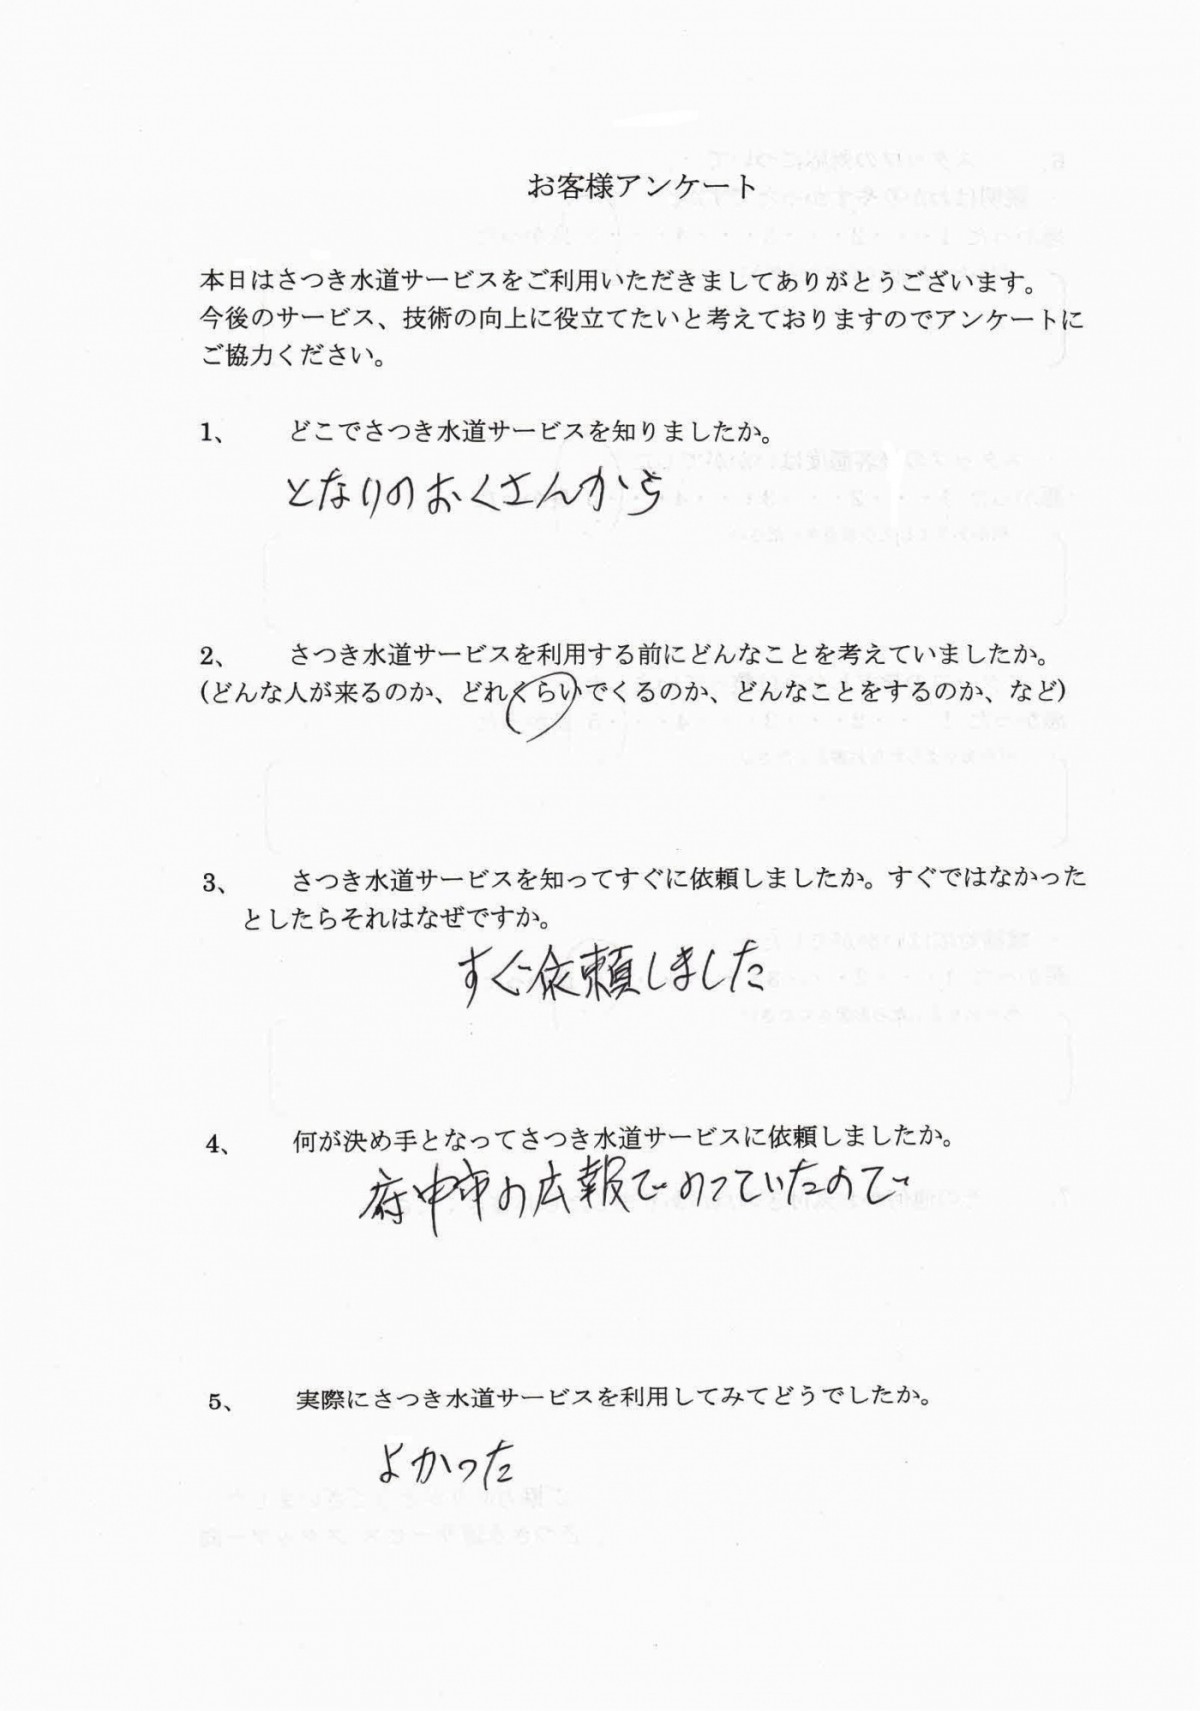 お客様アンケート
本日はさつき水道サービスをご利用いただきましてありがとうございます。
今後のサービス、技術の向上に役立てたいと考えておりますのでアンケートに
ご協力ください。
1、 どこでさつき水道サービスを知りましたか。
となりのおくさんから
2、 さつき水道サービスを利用する前にどんなことを考えていましたか。
(どんな人が来るのか、どれくらいでくるのか、どんなことをするのか、など)
3、 さつき水道サービスを知ってすぐに依頼しましたか。すぐではなかった
としたらそれはなぜですか。
すぐ依頼しました
4、 何が決め手となってさつき水道サービスに依頼しましたか。
府中市の広報でのっていたので
5、 実際にさつき水道サービスを利用してみてどうでしたか。
よかった